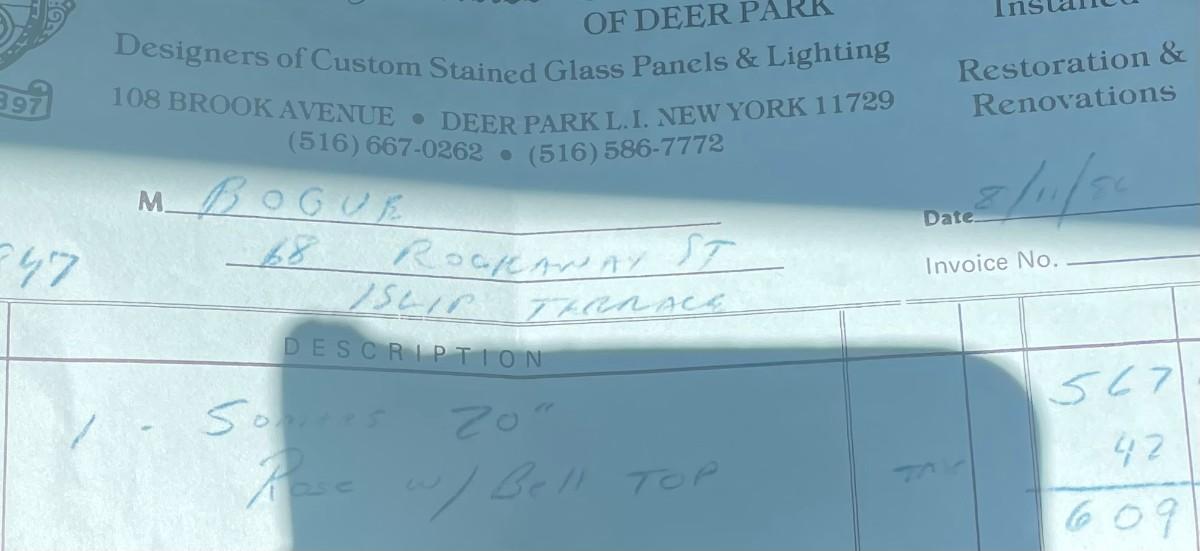 OF DEER PARK
Designers of Custom Stained Glass Panels & Lighting
Restoration &
Renovations
108 BROOK AVENUE • DEER PARK L.I. NEW YORK 11729
(516) 667-0262 • (516) 586-7772
397
M BOGUE
Date 8/11/86
68 ROCKAWAY ST
Invoice No.
ISLIP TERRACE
47
DESCRIPTION
1 - 20"
567
Rose w/ Bell TOP
TAX 42
609